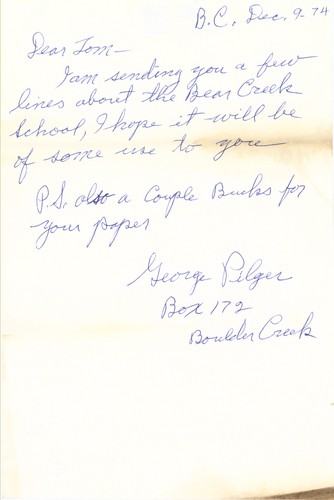 B.C., Dec. 9-74
Dear Tom-
I am sending you a few
lines about the Bear Creek
School, I hope it will be
of some use to you
P.S. also a Couple Bucks for
your paper
George Pilger
Box 172
Boulder Creek